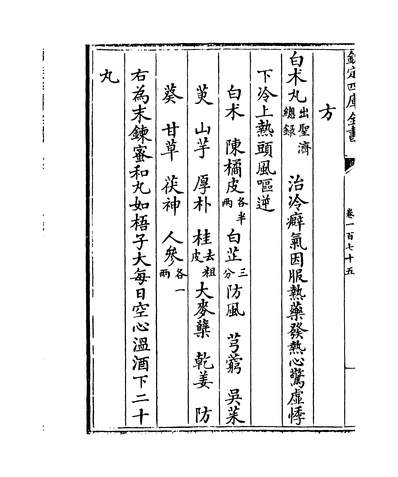 欽定四庫全書
卷一百七十五
方
白朮丸出聖濟總錄 治冷癖氣因服熱藥發熱心驚虛悸
下冷上熱頭風嘔逆
白朮 陳橘皮各半兩 白芷三分 防風 芎藭 吳茱
萸 山芋 厚朴 桂去粗皮 大麥糵 乾姜 防
葵 甘草 茯神 人參各一兩
右為末鍊蜜和丸如梧子大每日空心溫酒下二十
丸